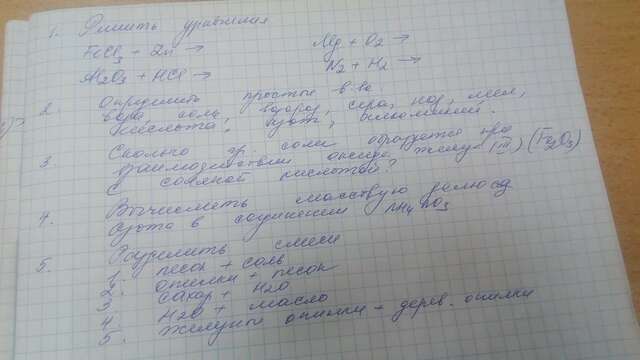 1. Решить уравнения
FeCl3 + Zn → Mg + O2 →
Al2O3 + HCl → N2 + H2 →
2. Определить простые в-ва
вода, соль, водород, сера, мел,
кислота, азот, алюминий.
3. Сколько гр. соли образуется при
взаимодействии оксида железа (III) (Fe2O3)
с соляной кислотой?
4. Вычислить массовую долю
азота в соединении NH4NO3
5. Разделить смеси
1. песок + соль
2. опилки + песок
3. сахар + H2O
4. H2O + масло
5. железные опилки - дерев. опилки